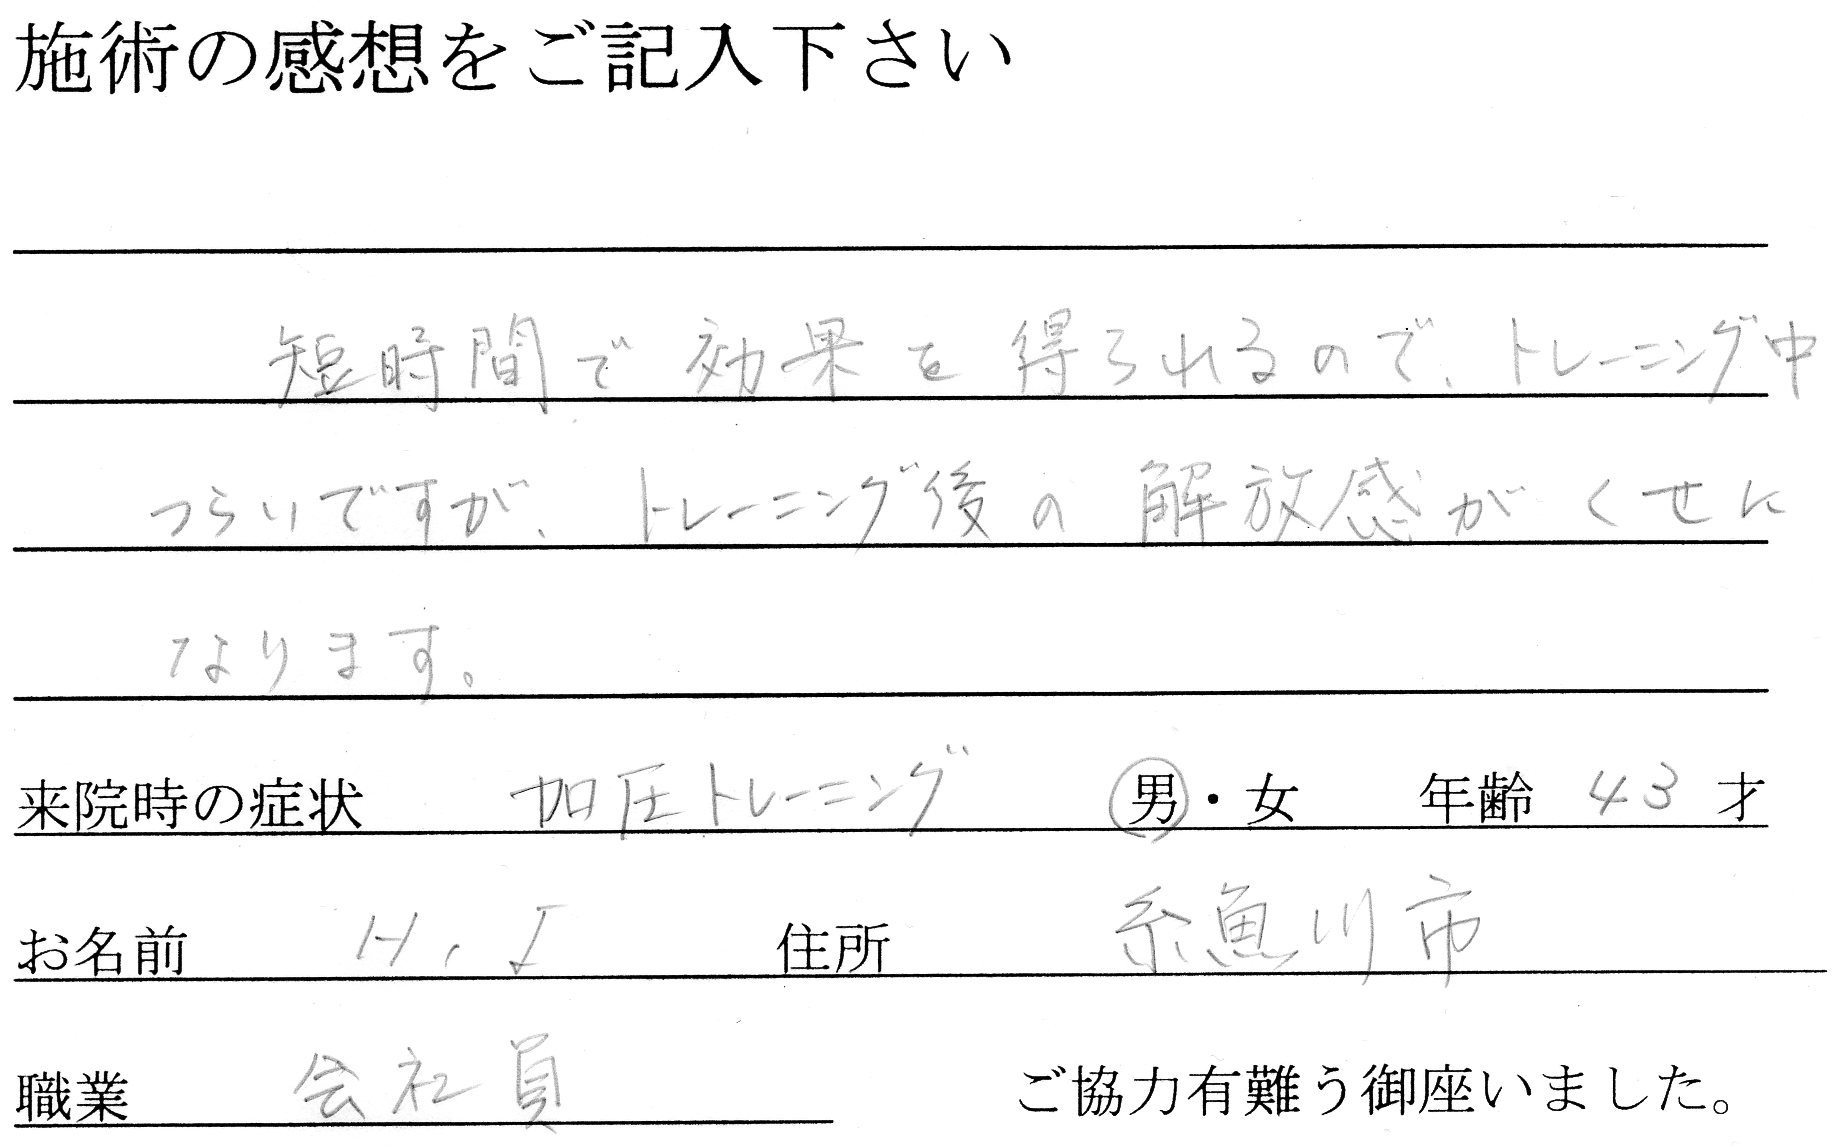 施術の感想をご記入下さい
短時間で効果を得られるので、トレーニング中
つらいですが、トレーニング後の解放感がくせに
なります。
来院時の症状 加圧トレーニング 男・女 年齢 43 才
お名前 H.I 住所 糸魚川市
職業 会社員 ご協力有難う御座いました。